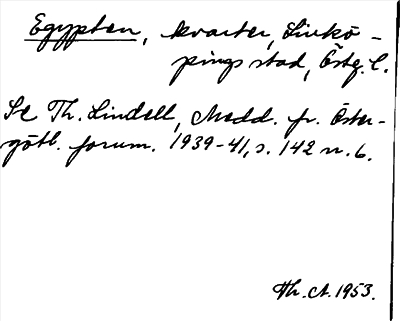 Egypten, kvarter, Linkö-
pings stad, Östg. l.
Se Th. Lindell, Medd. fr. Öster-
götl. fornm. 1939-41, s. 142 n. 6.
1953.